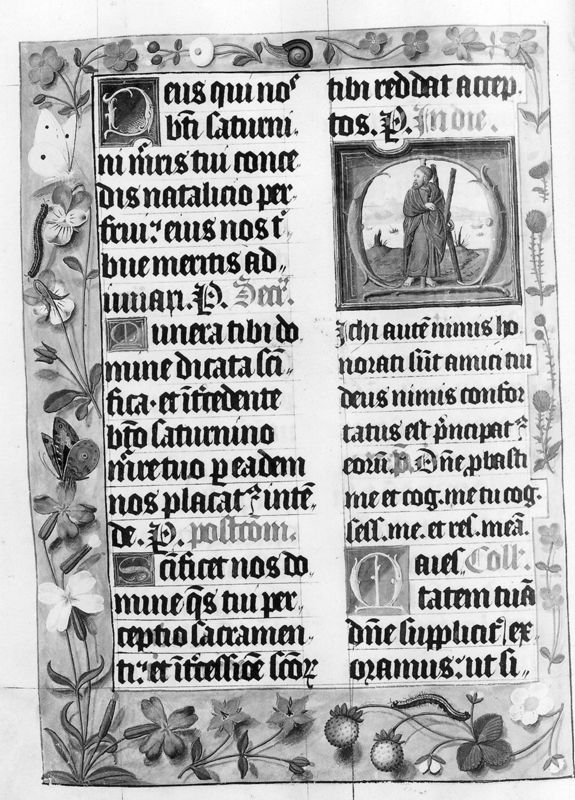 Deus qui nos
bti saturni.
ni mris tui conce
dis natalicio per
frui: eius nos t
bue meritis ad
iuuari. P. Secr.
Munera tibi do
mine dicata sci
fica. et itcedente
bto saturnino
mre tuo p eadem
nos placatꝰ inte
de. P. postcom.
Scificet nos do
mine qs tui per
ceptio sacramen
ti: et itcessioe scoꝝ
tibi reddat accep
tos. P. In die.
M
ichi aute nimis ho
norati sut amici tui
deus nimis confor
tatus est pncipatꝰ
eoru. p. Dne pbasti
me et cog. me tu cog.
sess. me. et res. mea.
Maies Coll.
tatem tua
dne supplicit ex
oramus: ut si